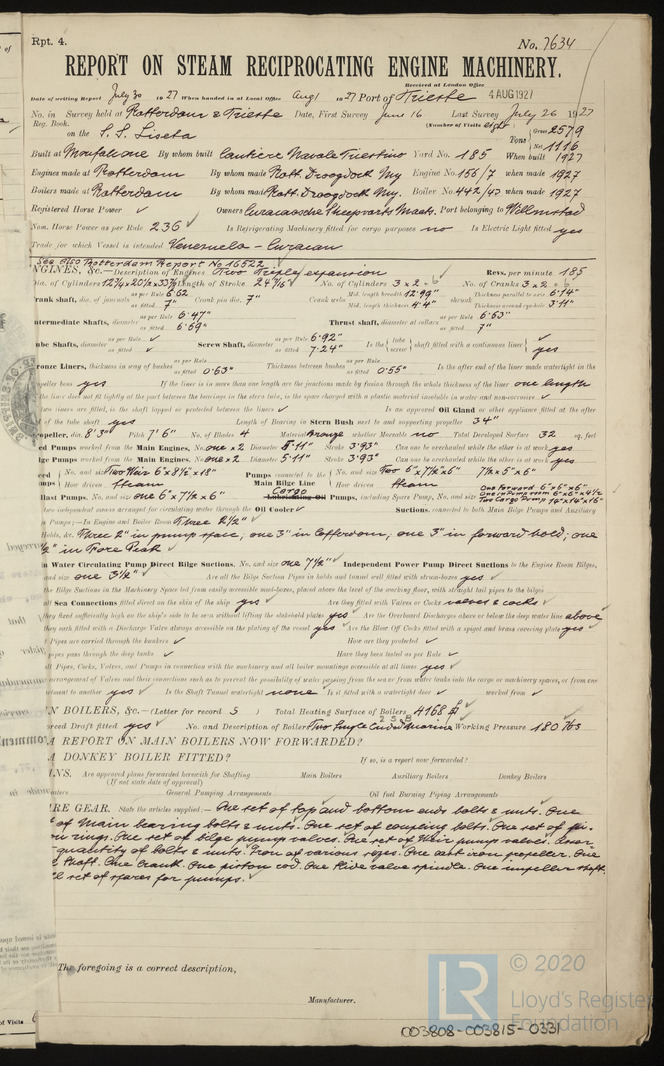 Rpt. 4.
No. 7634
REPORT ON STEAM RECIPROCATING ENGINE MACHINERY.
Received at London Office 4 AUG 1927
Date of writing Report July 30 1927 When handed in at Local Office Aug 1 1927 Port of Trieste
No. in Survey held at Rotterdam & Trieste Date, First Survey June 16 Last Survey July 26 1927
Reg. Book. (Number of Visits eight)
on the S. S. Liseta Tons Gross 2579 Net 1116
Built at Monfalcone By whom built Cantiere Navale Triestino Yard No. 185 When built 1927
Engines made at Rotterdam By whom made Rott. Droogdock My Engine No. 156/7 when made 1927
Boilers made at Rotterdam By whom made Rott. Droogdock My. Boiler No. 442/43 when made 1927
Registered Horse Power ✓ Owners Curacaosche Scheepvaart Maats. Port belonging to Willemstad
Nom. Horse Power as per Rule 236 ✓ Is Refrigerating Machinery fitted for cargo purposes no Is Electric Light fitted yes
Trade for which Vessel is intended Venezuela - Curacao
See also Rotterdam Report No 16522
NGINES, &c.—Description of Engines Two Triple expansion Revs. per minute 185
Dia. of Cylinders Length of Stroke No. of Cylinders 3 x 2 = 6 No. of Cranks 3 x 2 = 6
rank shaft, dia. of journals as per Rule 6.62 as fitted 7" Crank pin dia. 7" Crank webs Mid. length breadth 12.99" Mid. length thickness 4.4" shrunk Thickness parallel to axis 6.14" Thickness around eyehole 3.14"
ntermediate Shafts, diameter as per Rule 6.47" as fitted 6.69" Thrust shaft, diameter at collars as per Rule 6.63" as fitted 7"
ube Shafts, diameter as per Rule ✓ as fitted ✓ Screw Shaft, diameter as per Rule 6.92" as fitted 7.24" Is the tube screw shaft fitted with a continuous liner yes
ronze Liners, thickness in way of bushes as per Rule as fitted 0.63" Thickness between bushes as per Rule as fitted 0.55" Is the after end of the liner made watertight in the
peller boss yes If the liner is in more than one length are the junctions made by fusion through the whole thickness of the liner one length
the liner does not fit tightly at the part between the bearings in the stern tube, is the space charged with a plastic material insoluble in water and non-corrosive ✓
two liners are fitted, is the shaft lapped or protected between the liners ✓ Is an approved Oil Gland or other appliance fitted at the after
of the tube shaft yes Length of Bearing in Stern Bush next to and supporting propeller 34"
opeller, dia. 8'.3" Pitch 7'.6" No. of Blades 4 Material Bronze whether Moveable no Total Developed Surface 32 sq. feet
ed Pumps worked from the Main Engines, No. one x 2 Diameter 5.11" Stroke 3.93" Can one be overhauled while the other is at work yes
ge Pumps worked from the Main Engines, No. one x 2 Diameter 5.11" Stroke 3.93" Can one be overhauled while the other is at work yes
eed umps No. and size Two Weir 6" x 8½" x 18" Pumps connected to the Main Bilge Line No. and size Two 6" x 7½" x 6" 7½" x 5" x 6"
How driven Steam How driven Steam One Forward 6" x 6" x 6"
llast Pumps, No. and size one 6" x 7½" x 6" Cargo Lubricating Oil Pumps, including Spare Pump, No. and size One in Pump room 6" x 6" x 4½ Two Cargo Pump 14" x 14" x 16"
two independent means arranged for circulating water through the Oil Cooler ✓ Suctions, connected to both Main Bilge Pumps and Auxiliary
Pumps;—In Engine and Boiler Room Three 2½"
Holds, &c. Three 2" in pump space, one 3" in Cofferdam, one 3" in forward hold; one
½" in Fore Peak
n Water Circulating Pump Direct Bilge Suctions, No. and size one 7½" ✓ Independent Power Pump Direct Suctions to the Engine Room Bilges,
and size one 3½" ✓ Are all the Bilge Suction Pipes in holds and tunnel well fitted with strum-boxes yes
the Bilge Suctions in the Machinery Space led from easily accessible mud-boxes, placed above the level of the working floor, with straight tail pipes to the bilges
all Sea Connections fitted direct on the skin of the ship yes Are they fitted with Valves or Cocks valves & cocks
they fixed sufficiently high on the ship's side to be seen without lifting the stokehold plates yes Are the Overboard Discharges above or below the deep water line above
they each fitted with a Discharge Valve always accessible on the plating of the vessel yes Are the Blow Off Cocks fitted with a spigot and brass covering plate yes
Pipes are carried through the bunkers ✓ How are they protected ✓
pipes pass through the deep tanks ✓ Have they been tested as per Rule ✓
all Pipes, Cocks, Valves, and Pumps in connection with the machinery and all boiler mountings accessible at all times yes
arrangement of Valves and their connections such as to prevent the possibility of water passing from the sea or from water tanks into the cargo or machinery spaces, or from one
rtment to another yes Is the Shaft Tunnel watertight none Is it fitted with a watertight door ✓ worked from ✓
N BOILERS, &c.—(Letter for record S) Total Heating Surface of Boilers 4168
rced Draft fitted yes No. and Description of Boilers Two Single Ended Marine Working Pressure 180 lbs
2 S B
A REPORT ON MAIN BOILERS NOW FORWARDED?
A DONKEY BOILER FITTED? If so, is a report now forwarded?
NS. Are approved plans forwarded herewith for Shafting Main Boilers Auxiliary Boilers Donkey Boilers
(If not state date of approval)
General Pumping Arrangements Oil fuel Burning Piping Arrangements
RE GEAR. State the articles supplied:— One set of top and bottom ends bolts & nuts. One
of Main bearing bolts & nuts. One set of coupling bolts. One set of pi-
on rings. One set of bilge pump valves. One set of Weir pump valves.
quantity of bolts & nuts. Iron of various sizes. One cast iron propeller. One
shaft. One crank. One piston rod. One slide valve spindle. One impeller shaft.
set of spares for pumps.
The foregoing is a correct description,
Manufacturer.
© 2020
Lloyd's Register
Foundation
LR
003808-003815-0331